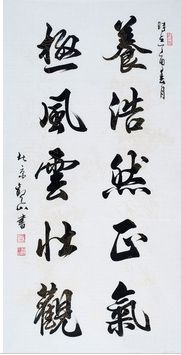 時在丁酉春月
養浩然正氣
極風雲壯觀
北京
書